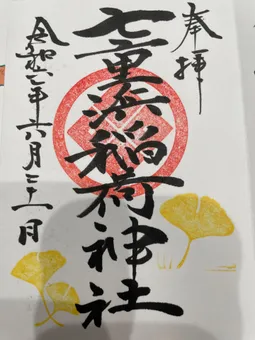 奉拝
七重浜稲荷神社
令和七年六月二十一日